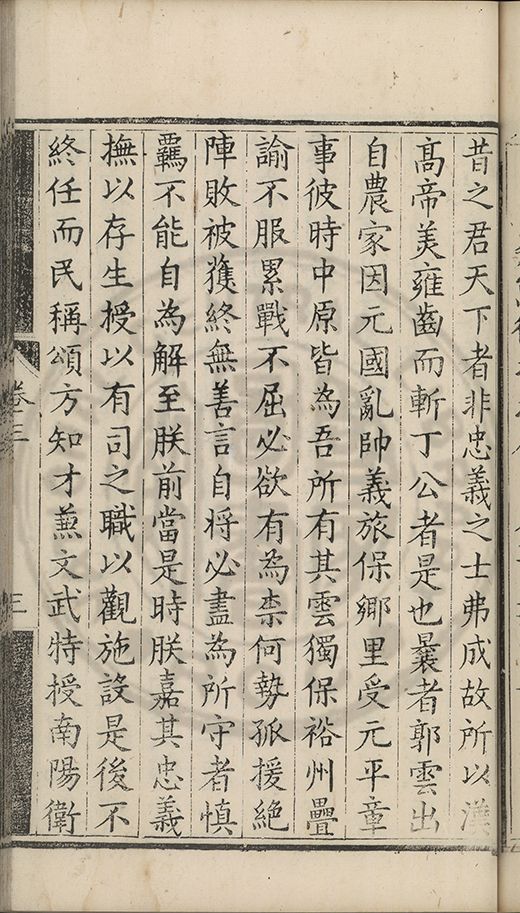 昔之君天下者非忠義之士弗成故所以漢
髙帝美雍齒而斬丁公者是也曩者郭雲出
自農家因元國亂帥義旅保鄉里受元平章
事彼時中原皆為吾所有其雲獨保裕州疊
諭不服累戰不屈必欲有為柰何勢孤援絶
陣敗被獲終無善言自將必盡為所守者慎
羈不能自為解至朕前當是時朕嘉其忠義
撫以存生授以有司之職以觀施設是後不
終任而民稱頌方知才兼文武特授南陽衛
卷三
三